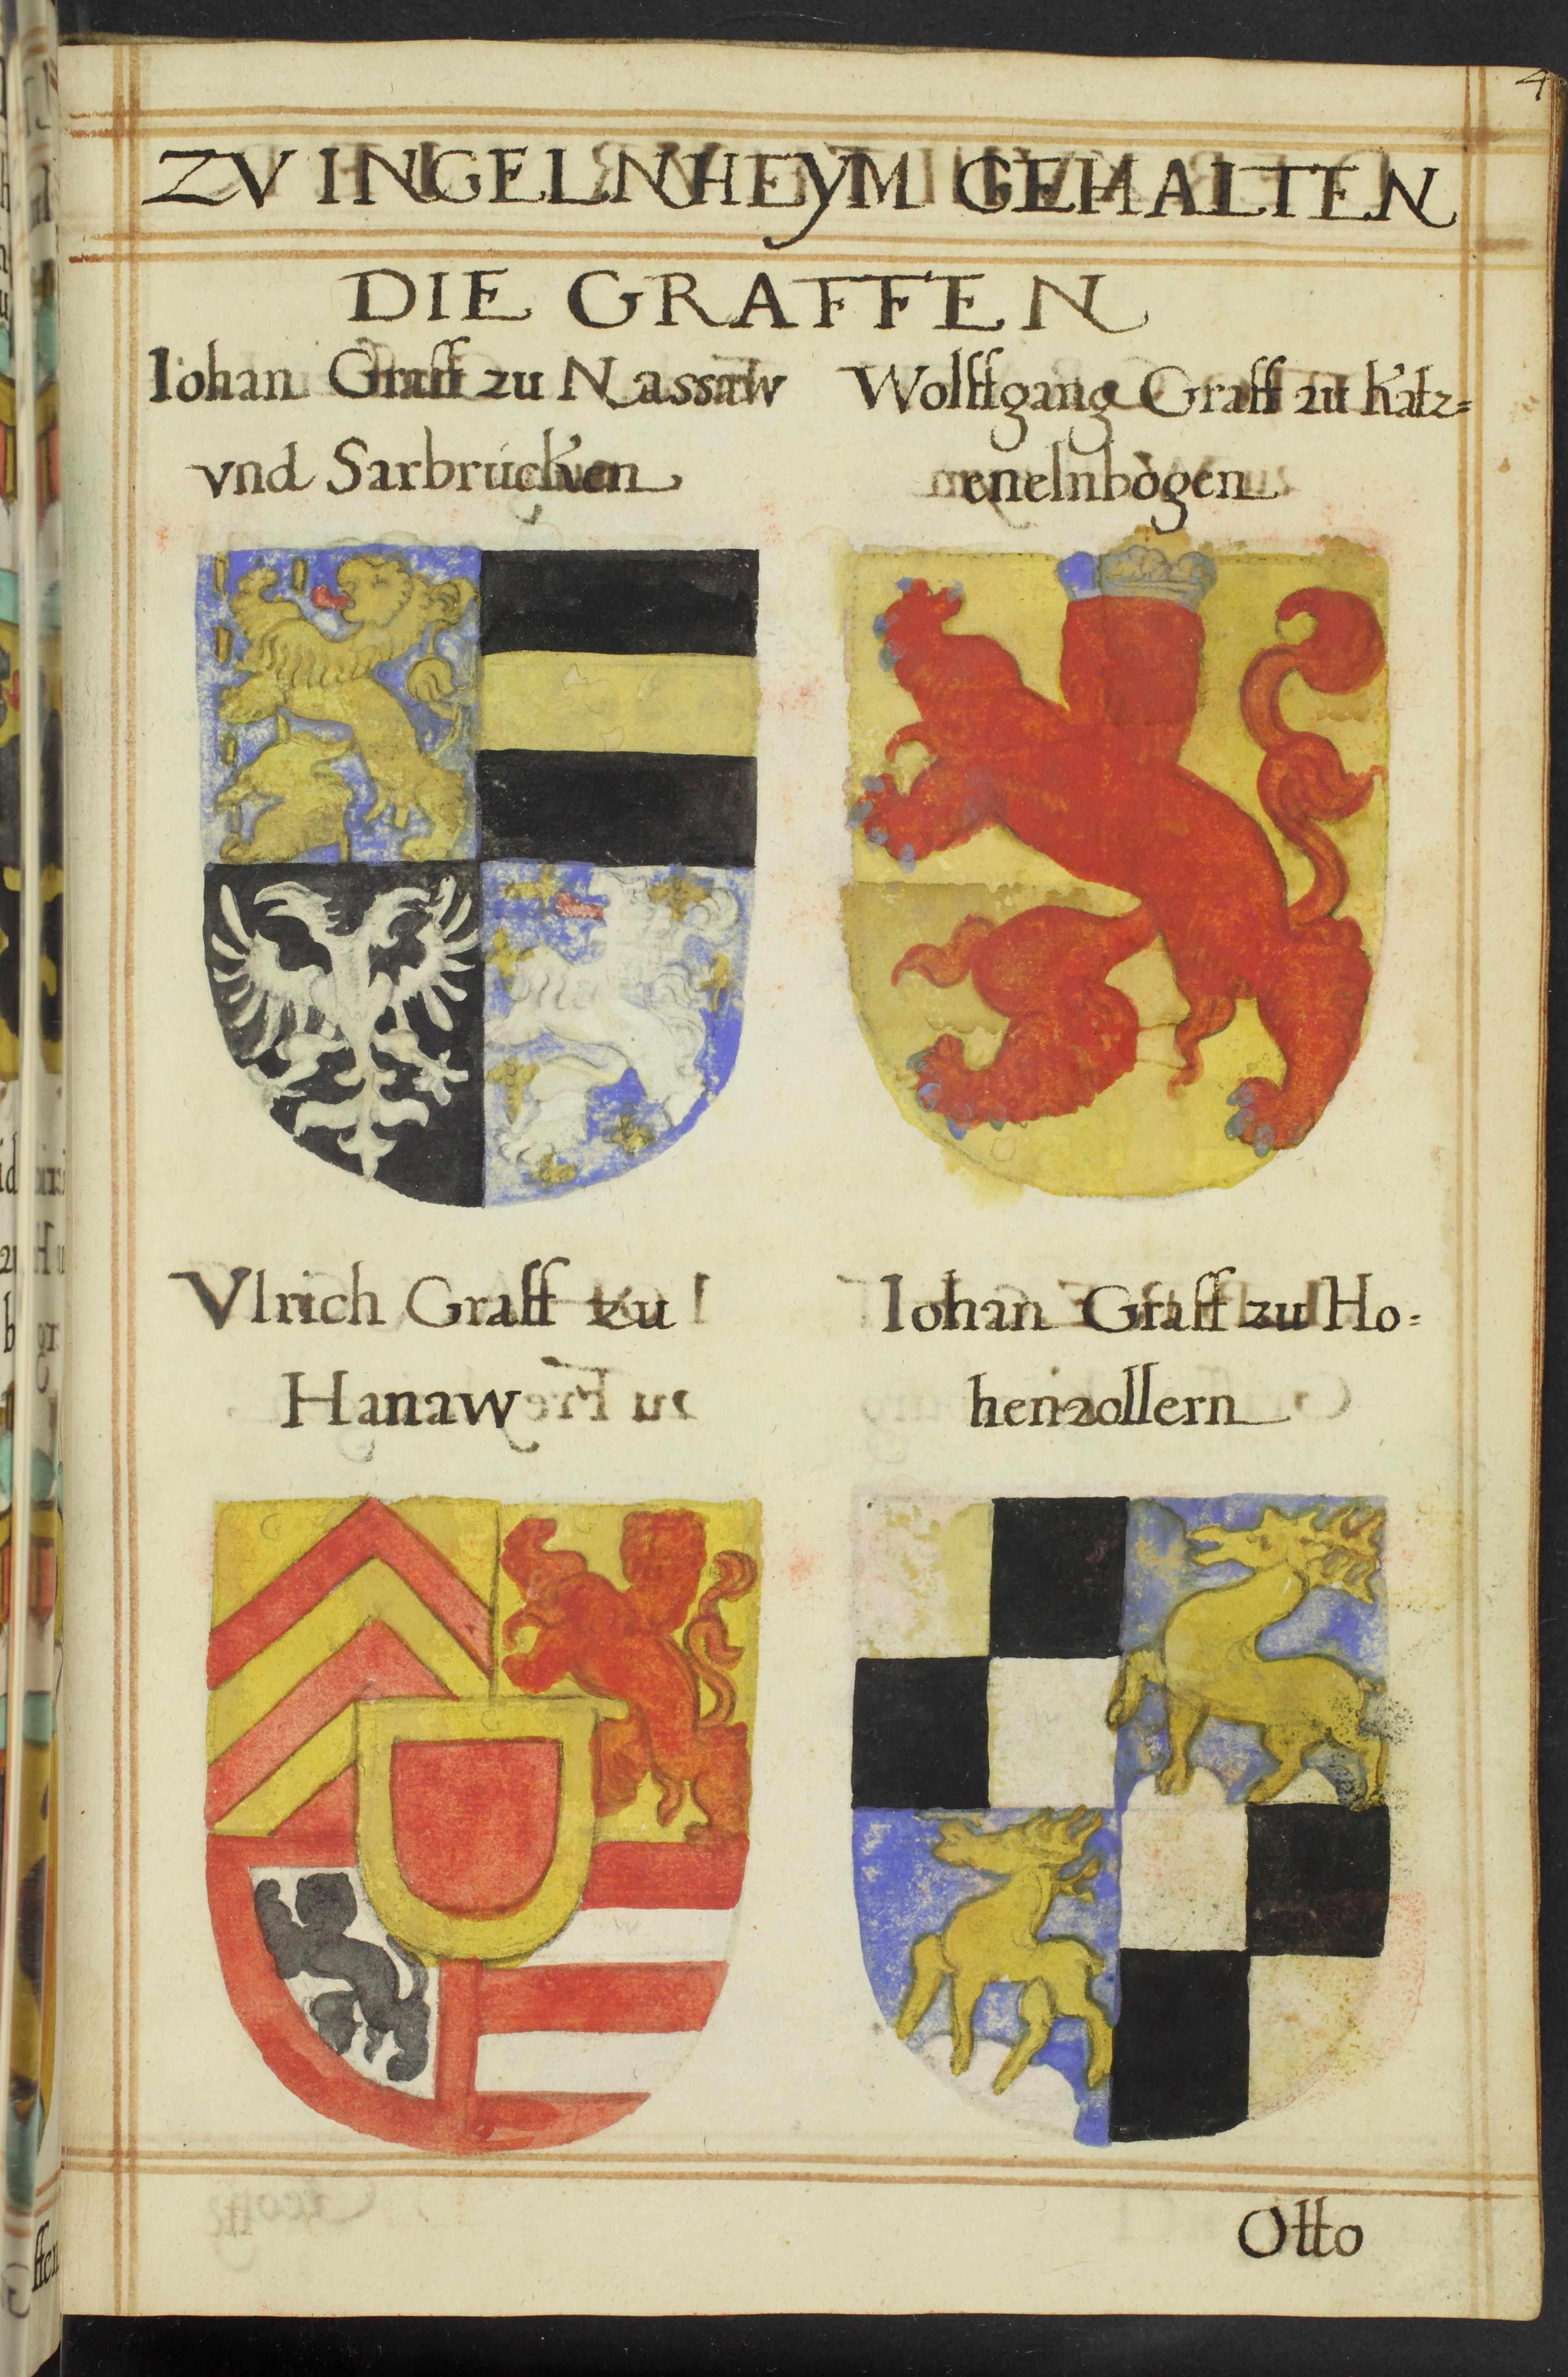 4
ZV INGELNHEYM GEHALTEN
DIE GRAFFEN
Iohan Graff zu Nassaw
vnd Sarbrücken
Wolffgang Graff zu Katz=
enelnbogen
Vlrich Graff zu
Hanaw
Iohan Graff zu Ho=
henzollern
Otto